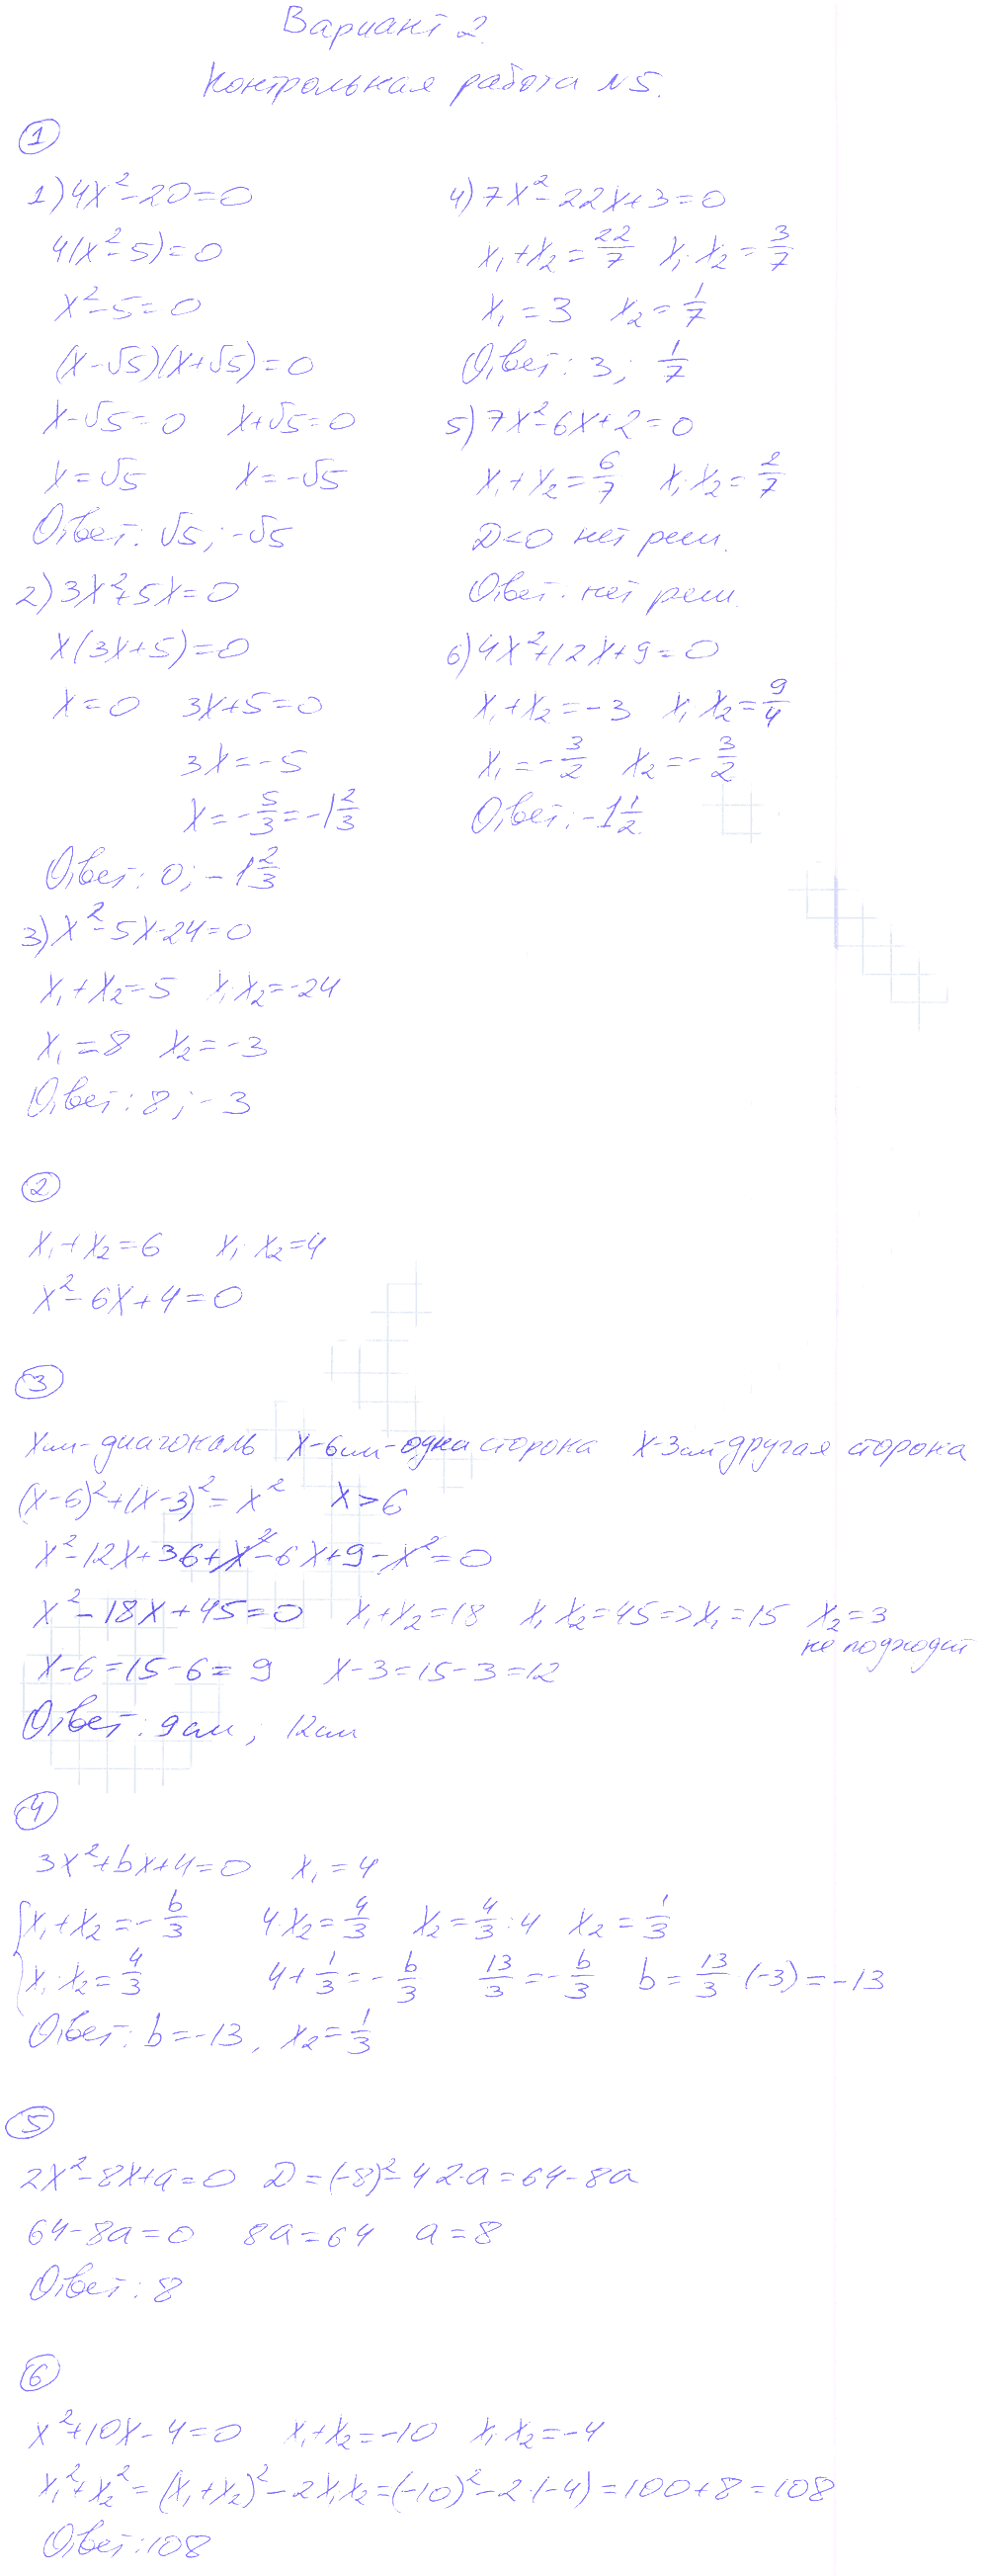 Вариант 2.
Контрольная работа №5.
1
1) 4x² - 20 = 0
4(x² - 5) = 0
x² - 5 = 0
(x - √5)(x + √5) = 0
x - √5 = 0 x + √5 = 0
x = √5 x = -√5
Ответ: √5; -√5
2) 3x² + 5x = 0
x(3x + 5) = 0
x = 0 3x + 5 = 0
3x = -5
x = -5/3 = -1 2/3
Ответ: 0; -1 2/3
3) x² - 5x - 24 = 0
x₁ + x₂ = 5 x₁·x₂ = -24
x₁ = 8 x₂ = -3
Ответ: 8; -3
4) 7x² - 22x + 3 = 0
x₁ + x₂ = 22/7 x₁·x₂ = 3/7
x₁ = 3 x₂ = 1/7
Ответ: 3; 1/7
5) 7x² - 6x + 2 = 0
x₁ + x₂ = 6/7 x₁·x₂ = 2/7
D < 0 нет реш.
Ответ: нет реш.
6) 4x² + 12x + 9 = 0
x₁ + x₂ = -3 x₁ x₂ = 9/4
x₁ = -3/2 x₂ = -3/2
Ответ: -1 1/2.
2
x₁ + x₂ = 6 x₁·x₂ = 4
x² - 6x + 4 = 0
3
x см - диагональ x - 6 см - одна сторона x - 3 см другая сторона
(x - 6)² + (x - 3)² = x² x > 6
x² - 12x + 36 + x² - 6x + 9 - x² = 0
x² - 18x + 45 = 0 x₁ + x₂ = 18 x₁ x₂ = 45 => x₁ = 15 x₂ = 3
не подходит
x - 6 = 15 - 6 = 9 x - 3 = 15 - 3 = 12
Ответ: 9 см; 12 см
4
3x² + bx + 4 = 0 x₁ = 4
{ x₁ + x₂ = -b/3 4x₂ = 4/3 x₂ = 4/3 : 4 x₂ = 1/3
x₁·x₂ = 4/3 4 + 1/3 = -b/3 13/3 = -b/3 b = 13/3·(-3) = -13
Ответ: b = -13, x₂ = 1/3
5
2x² - 8x + a = 0 D = (-8)² - 4·2·a = 64 - 8a
64 - 8a = 0 8a = 64 a = 8
Ответ: 8
6
x² + 10x - 4 = 0 x₁ + x₂ = -10 x₁·x₂ = -4
x₁² + x₂² = (x₁ + x₂)² - 2x₁x₂ = (-10)² - 2·(-4) = 100 + 8 = 108
Ответ: 108